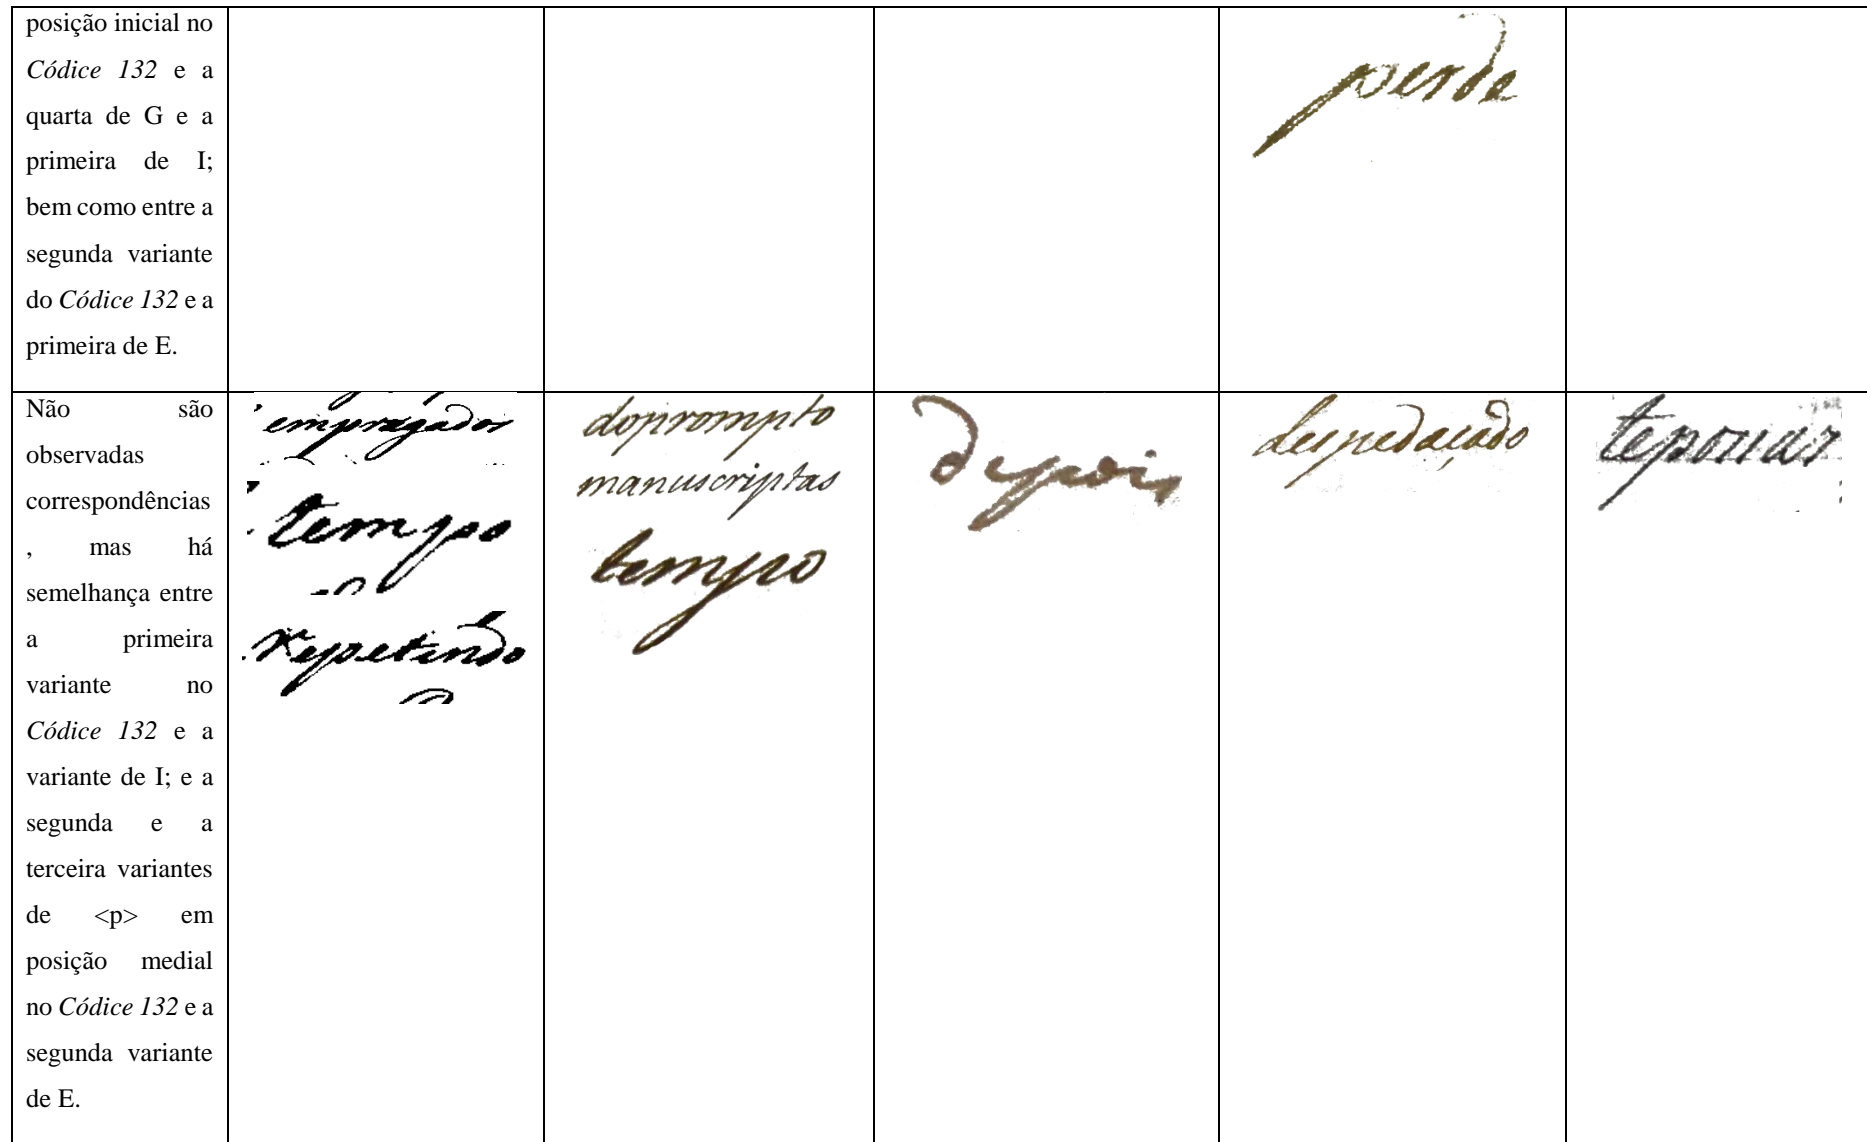 posição inicial no
Códice 132 e a
quarta de G e a
primeira de I;
bem como entre a
segunda variante
do Códice 132 e a
primeira de E.
perda
Não são
observadas
correspondências
, mas há
semelhança entre
a primeira
variante no
Códice 132 e a
variante de I; e a
segunda e a
terceira variantes
de <p> em
posição medial
no Códice 132 e a
segunda variante
de E.
empragados
tempo
repetindo
doprompto
manuscriptas
tempo
depois
despedaçado